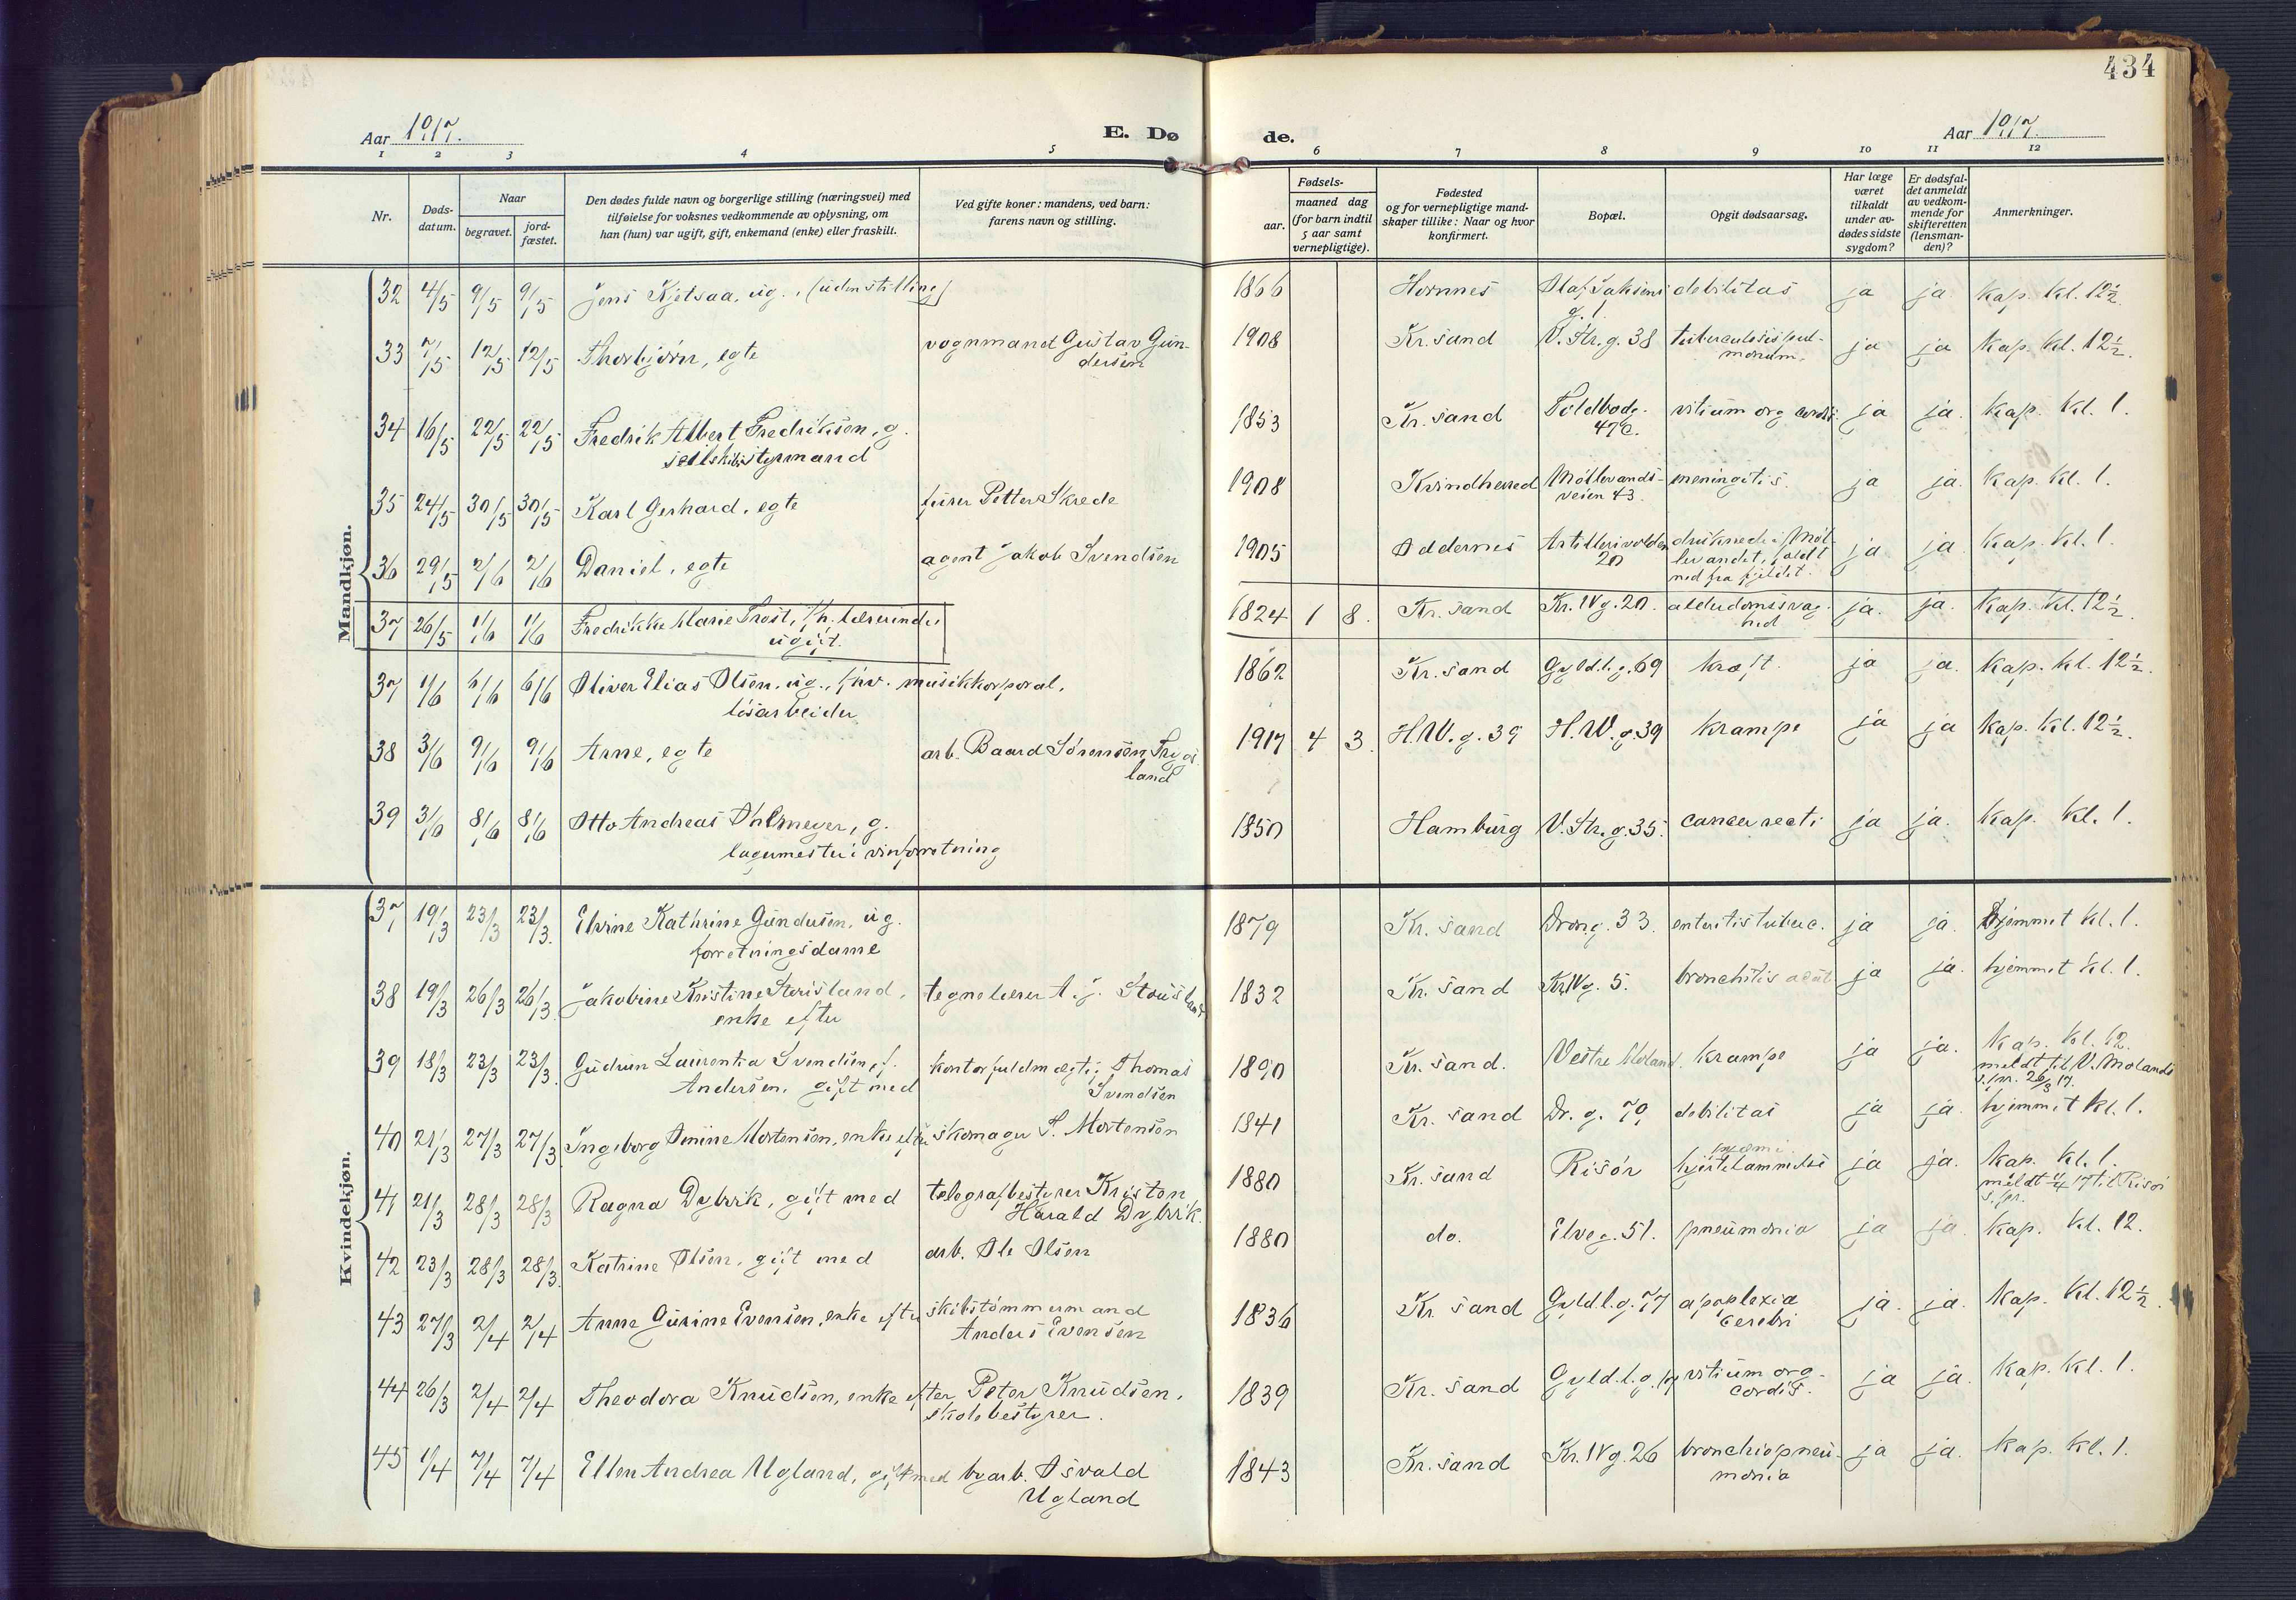 434
Aar 1917.
E. Dø de.
Aar 1917.
1 2 3 4 5 6 7 8 9 10 11 12
Nr.
Døds-
datum.
Naar
begravet.
jord-
fæstet.
Den dødes fulde navn og borgerlige stilling (næringsvei) med
tilføielse for voksnes vedkommende av oplysning, om
han (hun) var ugift, gift, enkemand (enke) eller fraskilt.
Ved gifte koner: mandens, ved barn:
farens navn og stilling.
Fødsels-
aar.
maaned dag
(for barn indtil
5 aar samt
vernepligtige).
Fødested
og for vernepligtige mand-
skaper tillike: Naar og hvor
konfirmert.
Bopæl.
Opgit dødsaarsag.
Har læge
været
tilkaldt
under av-
dødes sidste
sygdom?
Er dødsfal-
det anmeldt
av vedkom-
mende for
skifteretten
(lensman-
den)?
Anmerkninger.
Mandkjøn.
32 4/5 9/5 9/5 Jens Kjetsaa, ug., (uden stilling) 1866 Hornnes Olaf debilitas ja ja. Kap. kl. 12½.
33 7/5 12/5 12/5 Thorbjørn, egte vognmand Gustav Gun- 1908 Kr. sand V. Str. g. 38 tuberculosis pul- ja ja Kap. kl. 12½.
dersen monum.
34 16/5 22/5 22/5 Fredrik Albert Fredriksen, g. 1853 Kr. sand Toldbodg. vitium org cordis ja ja. Kap. kl. 1.
seilskibsstyrmand 47c.
35 24/5 30/5 30/5 Karl Gerhard, egte furer Petter Skrede 1908 Kvindherred Møllevands- meningitis. ja ja. Kap. kl. 1.
veien 43.
36 29/5 2/6 2/6 Daniel, egte agent Jakob Svendsen 1905 Oddernes Artillerivolden druknede i Møl- ja ja. Kap. kl. 1.
20 levandet, faldt
ned fra fjeldet.
37 26/5 1/6 1/6 Fredrikke Marie Trost, fh. lærerinde, 1824 1 8. Kr. sand Kr. IVg. 20. alderdomssvag- ja. ja. Kap. kl. 12½.
ugift. hed
37 1/6 6/6 6/6 Oliver Elias Olsen, ug., fhv. musikkorporal, 1862 Kr. sand Gyld. l. g. 69 kræft. ja ja. Kap. kl. 12½.
løsarbeider
38 3/6 9/6 9/6 Arne, egte arb. Baard Sørensen 1917 4 3. H.W.g. 39 H.W.g. 39 krampe ja ja Kap. kl. 12½.
land
39 3/6 8/6 8/6 Otto Andreas Ohlmeyer, g. 1850 Hamburg V. Str. g. 35. cancer recti ja ja. Kap. kl. 1.
lagermester i vinforretning
Kvindekjøn.
37 19/3 23/3 23/3. Elvine Kathrine Gundersen, ug. 1879 Kr. sand Dron. g. 33. enteritis tuberc. ja ja. hjemmet kl. 1.
forretningsdame
38 19/3 26/3 26/3. Jakobine Kristine Stousland, tegnelærer A. J. Stousland 1832 Kr. sand Kr.IVg. 5. bronchitis acut ja ja. hjemmet kl. 1.
enke efter
39 18/3 23/3 23/3. Gudrun Laurentia Svendsen, f. kontorfuldmægtig Thomas 1890 Kr. sand. Vestre Moland. krampe ja ja. Kap. kl. 12.
Andersen, gift med Svendsen meldt til V. Molands
s.pr. 26/3 17.
40 21/3 27/3 27/3 Ingeborg Omine Mortensen, enke efter skomager S. Mortensen 1841 Kr. sand Dr. g. 70 debilitas ja ja. hjemmet kl. 1.
41 21/3 28/3 28/3 Ragna Dybvik, gift med telegrafbestyrer Kristen 1880 Kr. sand Risør hjertelammelse ja ja. Kap. kl. 1.
Harald Dybvik. meldt 4/4 17 til Risør
s.pr.
42 23/3 28/3 28/3. Katrine Olsen, gift med arb. Ole Olsen 1880 do. Elveg. 51. pneumonia ja ja. Kap. kl. 12.
43 27/3 2/4 2/4 Anne Gurine Evensen, enke efter skibstømmermand 1836 Kr. sand Gyld. l. g. 77 apoplexia ja. ja. Kap. kl. 12½.
Anders Evensen cerebri
44 26/3 2/4 2/4 Theodora Knudsen, enke efter Peter Knudsen, 1839 Kr. sand Gyld. l. g. vitium org. ja ja. Kap. kl. 1.
skolebestyrer. cordis.
45 1/4 7/4 7/4 Ellen Andrea Ugland, gift med byarb. Osvald 1843 Kr. sand Kr. IVg. 26 bronchiopneu- ja ja. Kap. kl. 1.
Ugland monia